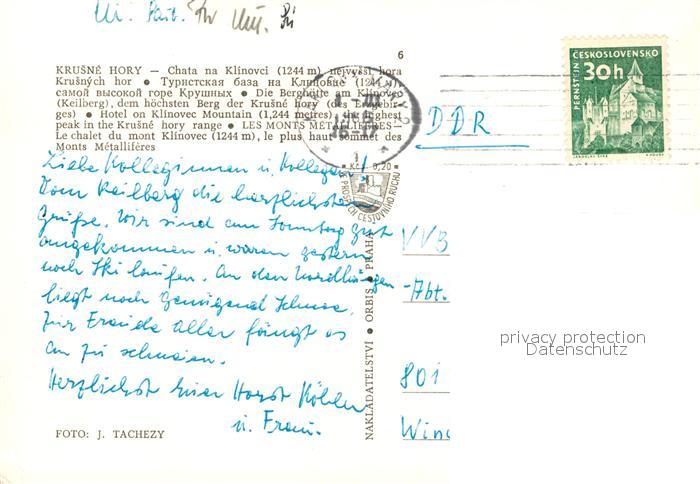 6
KRUŠNÉ HORY — Chata na Klínovci (1244 m) nejvyšší hora
Krušných hor ● Туристская база на Клиновце (1244 м)
самой высокой горе Крушных ● Die Berghütte am Klínovec
(Keilberg), dem höchsten Berg der Krušné hory (des Erzgebir-
ges) ● Hotel on Klínovec Mountain (1,244 metres), the highest
peak in the Krušné hory range ● LES MONTS MÉTALLIFÈRES —
Le chalet du mont Klínovec (1244 m), le plus haut sommet des
Monts Métallifères
Liebe Kolleginnen u. Kollegen!
Vom Keilberg die herzlichsten
Grüße. Wir sind am Sonntag gut
angekommen u. waren gestern
noch Ski laufen. An den Nordhängen
liegt noch genügend Schnee.
Zur Freude aller fängt es
an zu schneien.
Herzlichst Euer Horst Köhler
u. Frau.
FOTO: J. TACHEZY
NAKLADATELSTVÍ ● ORBIS ● PRAHA
Kčs 0,20
VE PROSPĚCH CESTOVNÍHO RUCHU
ČESKOSLOVENSKO
30h
PERNŠTEJN
DDR
VVB
-Abt.
801
privacy protection
Datenschutz